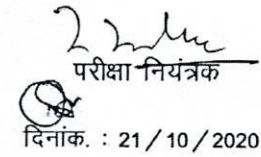 परीक्षा नियंत्रक
दिनांक. : 21 / 10 / 2020